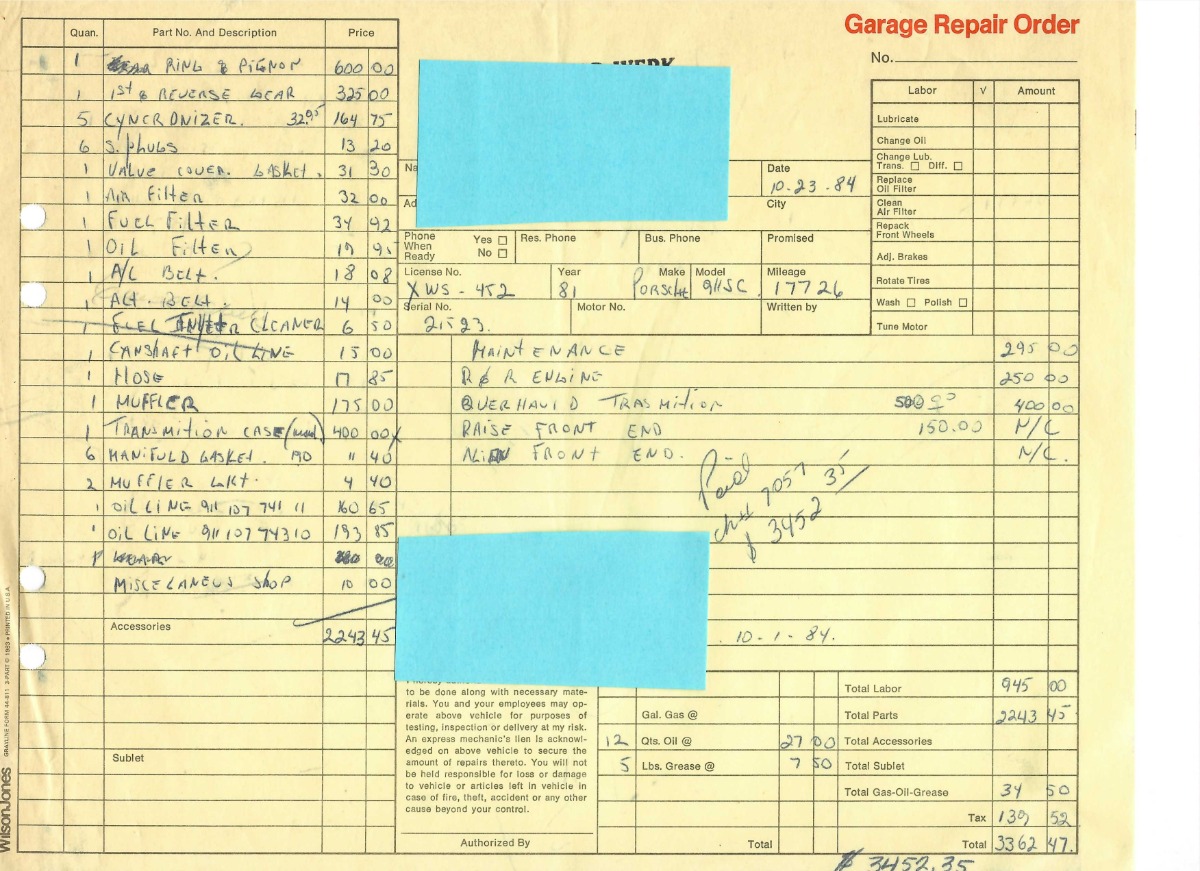 Garage Repair Order
No.
Quan. Part No. And Description Price
1 RING & PIGNON 600 00
1 1st & REVERSE GEAR 325 00
5 CYNCRONIZER. 32.95 164 75
6 S. PLUGS 13 20
1 VALVE COVER. GASKET. 31 30
1 AIR FILTER 32 00
1 FUEL FILTER 34 92
1 OIL FILTER 17 95
1 A/C BELT. 18 08
1 ALT. BELT. 14 00
1 FUEL CLEANER 6 50
1 CAMSHAFT OIL LINE 15 00
1 HOSE 17 85
1 MUFFLER 175 00
1 TRANSMITION CASE 400 00 X
6 MANIFULD GASKET. 190 11 40
2 MUFFLER GKT. 4 40
1 OIL LINE 911 107 741 11 160 65
1 OIL LINE 911 107 743 10 193 85
MISCELANEUS SHOP 10 00
Accessories
2243 45
Sublet
Na
Date
10-23-84
Ad
City
Phone When Ready Yes No
Res. Phone
Bus. Phone
Promised
License No.
XWS-452
Year
81
Make
PORSCHE
Model
911SC.
Mileage
17726
Serial No.
21523.
Motor No.
Written by
Labor √ Amount
Lubricate
Change Oil
Change Lub. Trans. Diff.
Replace Oil Filter
Clean Air Filter
Repack Front Wheels
Adj. Brakes
Rotate Tires
Wash Polish
Tune Motor
MAINTENANCE 295 00
R & R ENGINE 250 00
OVERHAUL D TRASMITION 500.00 400 00
RAISE FRONT END 150.00 N/C
ALIGN FRONT END. N/C.
Paid
ch# 7057
$ 3452 35
10-1-84.
to be done along with necessary mate-
rials. You and your employees may op-
erate above vehicle for purposes of
testing, inspection or delivery at my risk.
An express mechanic's lien is acknowl-
edged on above vehicle to secure the
amount of repairs thereto. You will not
be held responsible for loss or damage
to vehicle or articles left in vehicle in
case of fire, theft, accident or any other
cause beyond your control.
Authorized By
Gal. Gas @
12 Qts. Oil @ 27 00
5 Lbs. Grease @ 7 50
Total
Total Labor 945 00
Total Parts 2243 45
Total Accessories
Total Sublet
Total Gas-Oil-Grease 34 50
Tax 139 52
Total 3362 47.
$ 3452.35
WilsonJones GRAYLINE FORM 44-811 3-PART © 1983 • PRINTED IN U.S.A.